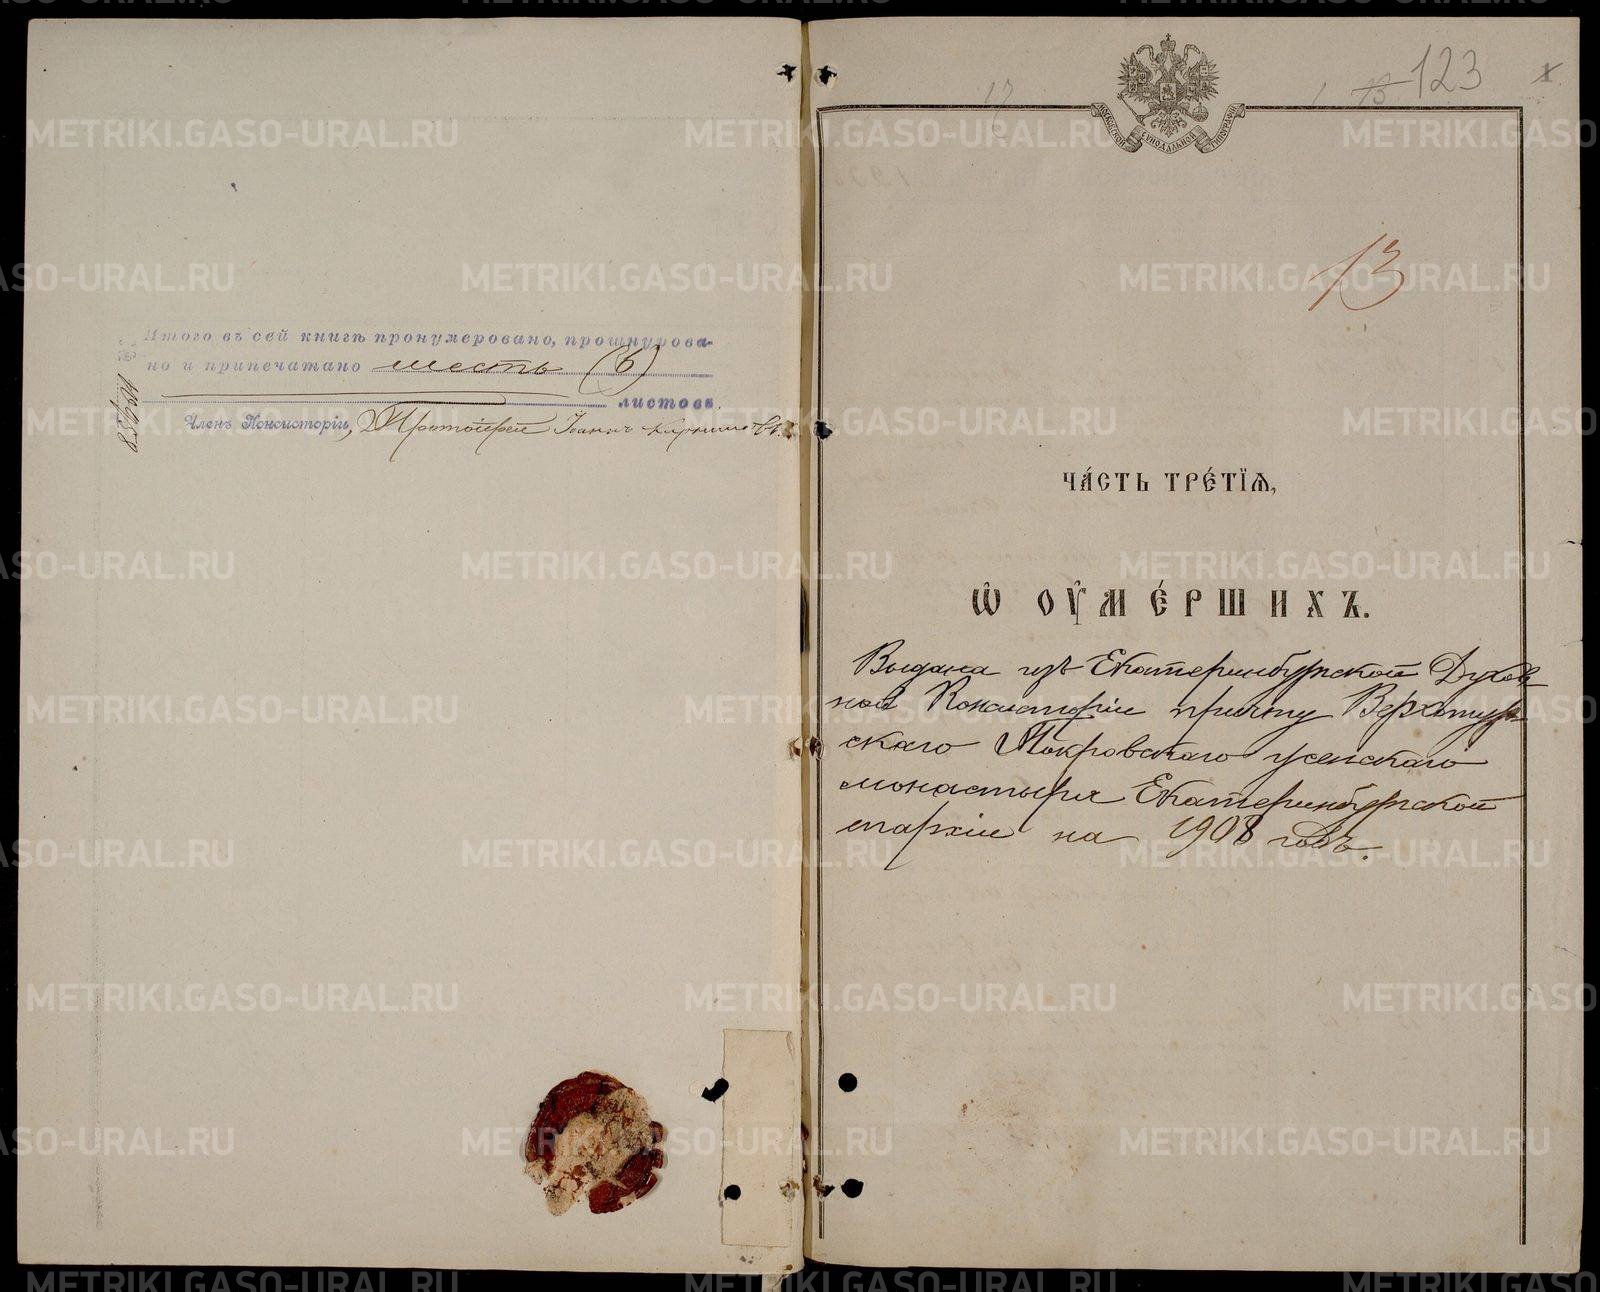 Итого въ сей книгѣ пронумеровано, прошнурова-
но и припечатано шесть (6)
листовъ.
Членъ Консисторіи, Протоіерей Іоаннъ
МОСКОВСКОЙ СѴНОДАЛЬНОЙ ТИПОГРАФІИ
123
13
ЧА́СТЬ ТРЕ́ТЇѦ,
Ѡ҆ ОУ҆МЕ́РШИХЪ.
Выдана изъ Екатеринбургской Духов-
ной Консисторіи причту Верхотур-
скаго Покровскаго женскаго
монастыря Екатеринбургской
епархіи на 1908 годъ.
METRIKI.GASO-URAL.RU